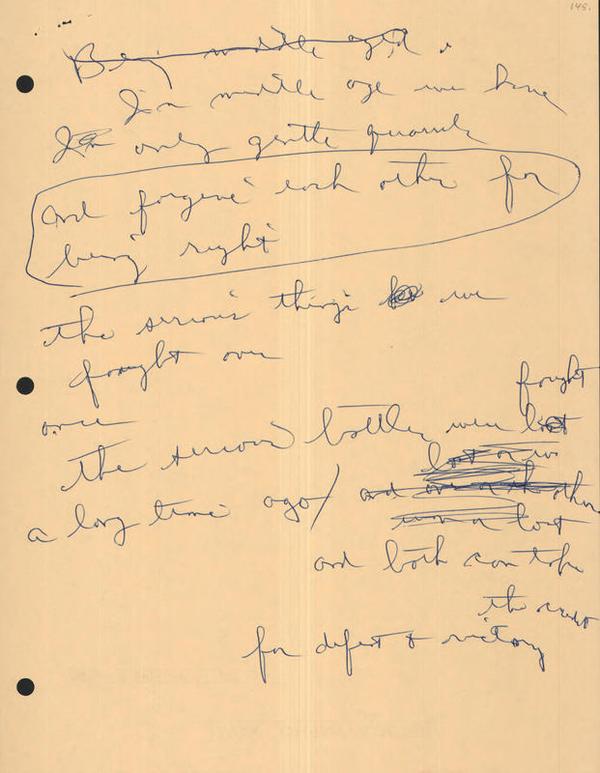 148.
Being middle aged
In middle age we have
In only gentle quarrels
and forgive each other for
being right
the serious things we
fought over
once
fought
the serious battles were lost
lost or won
a long time ago/ and over on the other
won or lost
and both can take
the credit
for defeat & victory